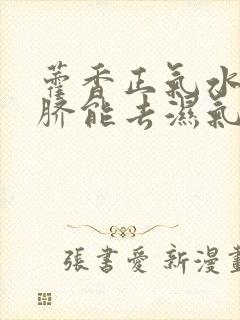 藿香正氣水
臍能去濕氣
張書愛 新漫畫